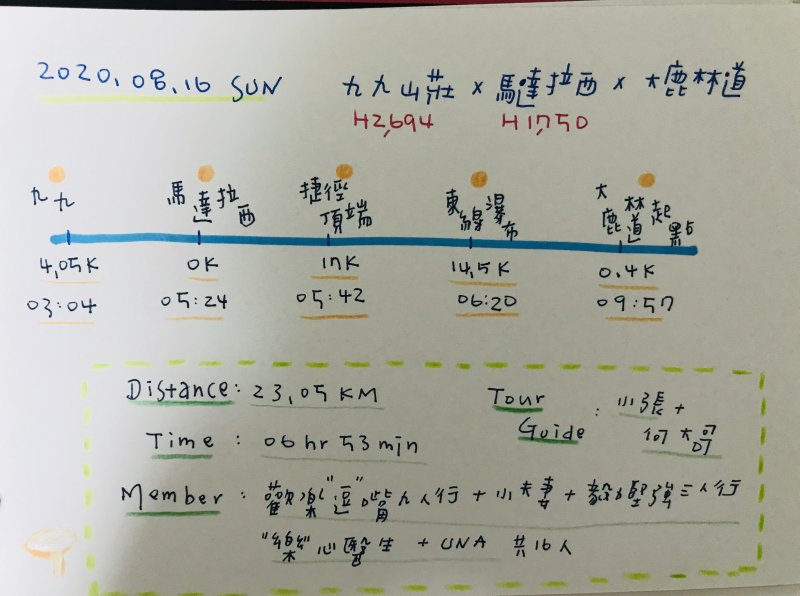 2020.08.16 SUN 九九山莊 x 馬達拉西 x 大鹿林道
H2,694 H1,750
九九 馬達拉西 捷徑頂端 東線瀑布 大鹿林道起點
4.05K 0K 17K 14.5K 0.4K
03:04 05:24 05:42 06:20 09:57
Distance: 23.05 KM
Time : 06 hr 53 min
Tour Guide : 小張 + 何大哥
Member : 歡樂"逗"嘴九人行 + 小夫妻 + 毅力堅強三人行
"樂"心醫生 + UNA 共16人